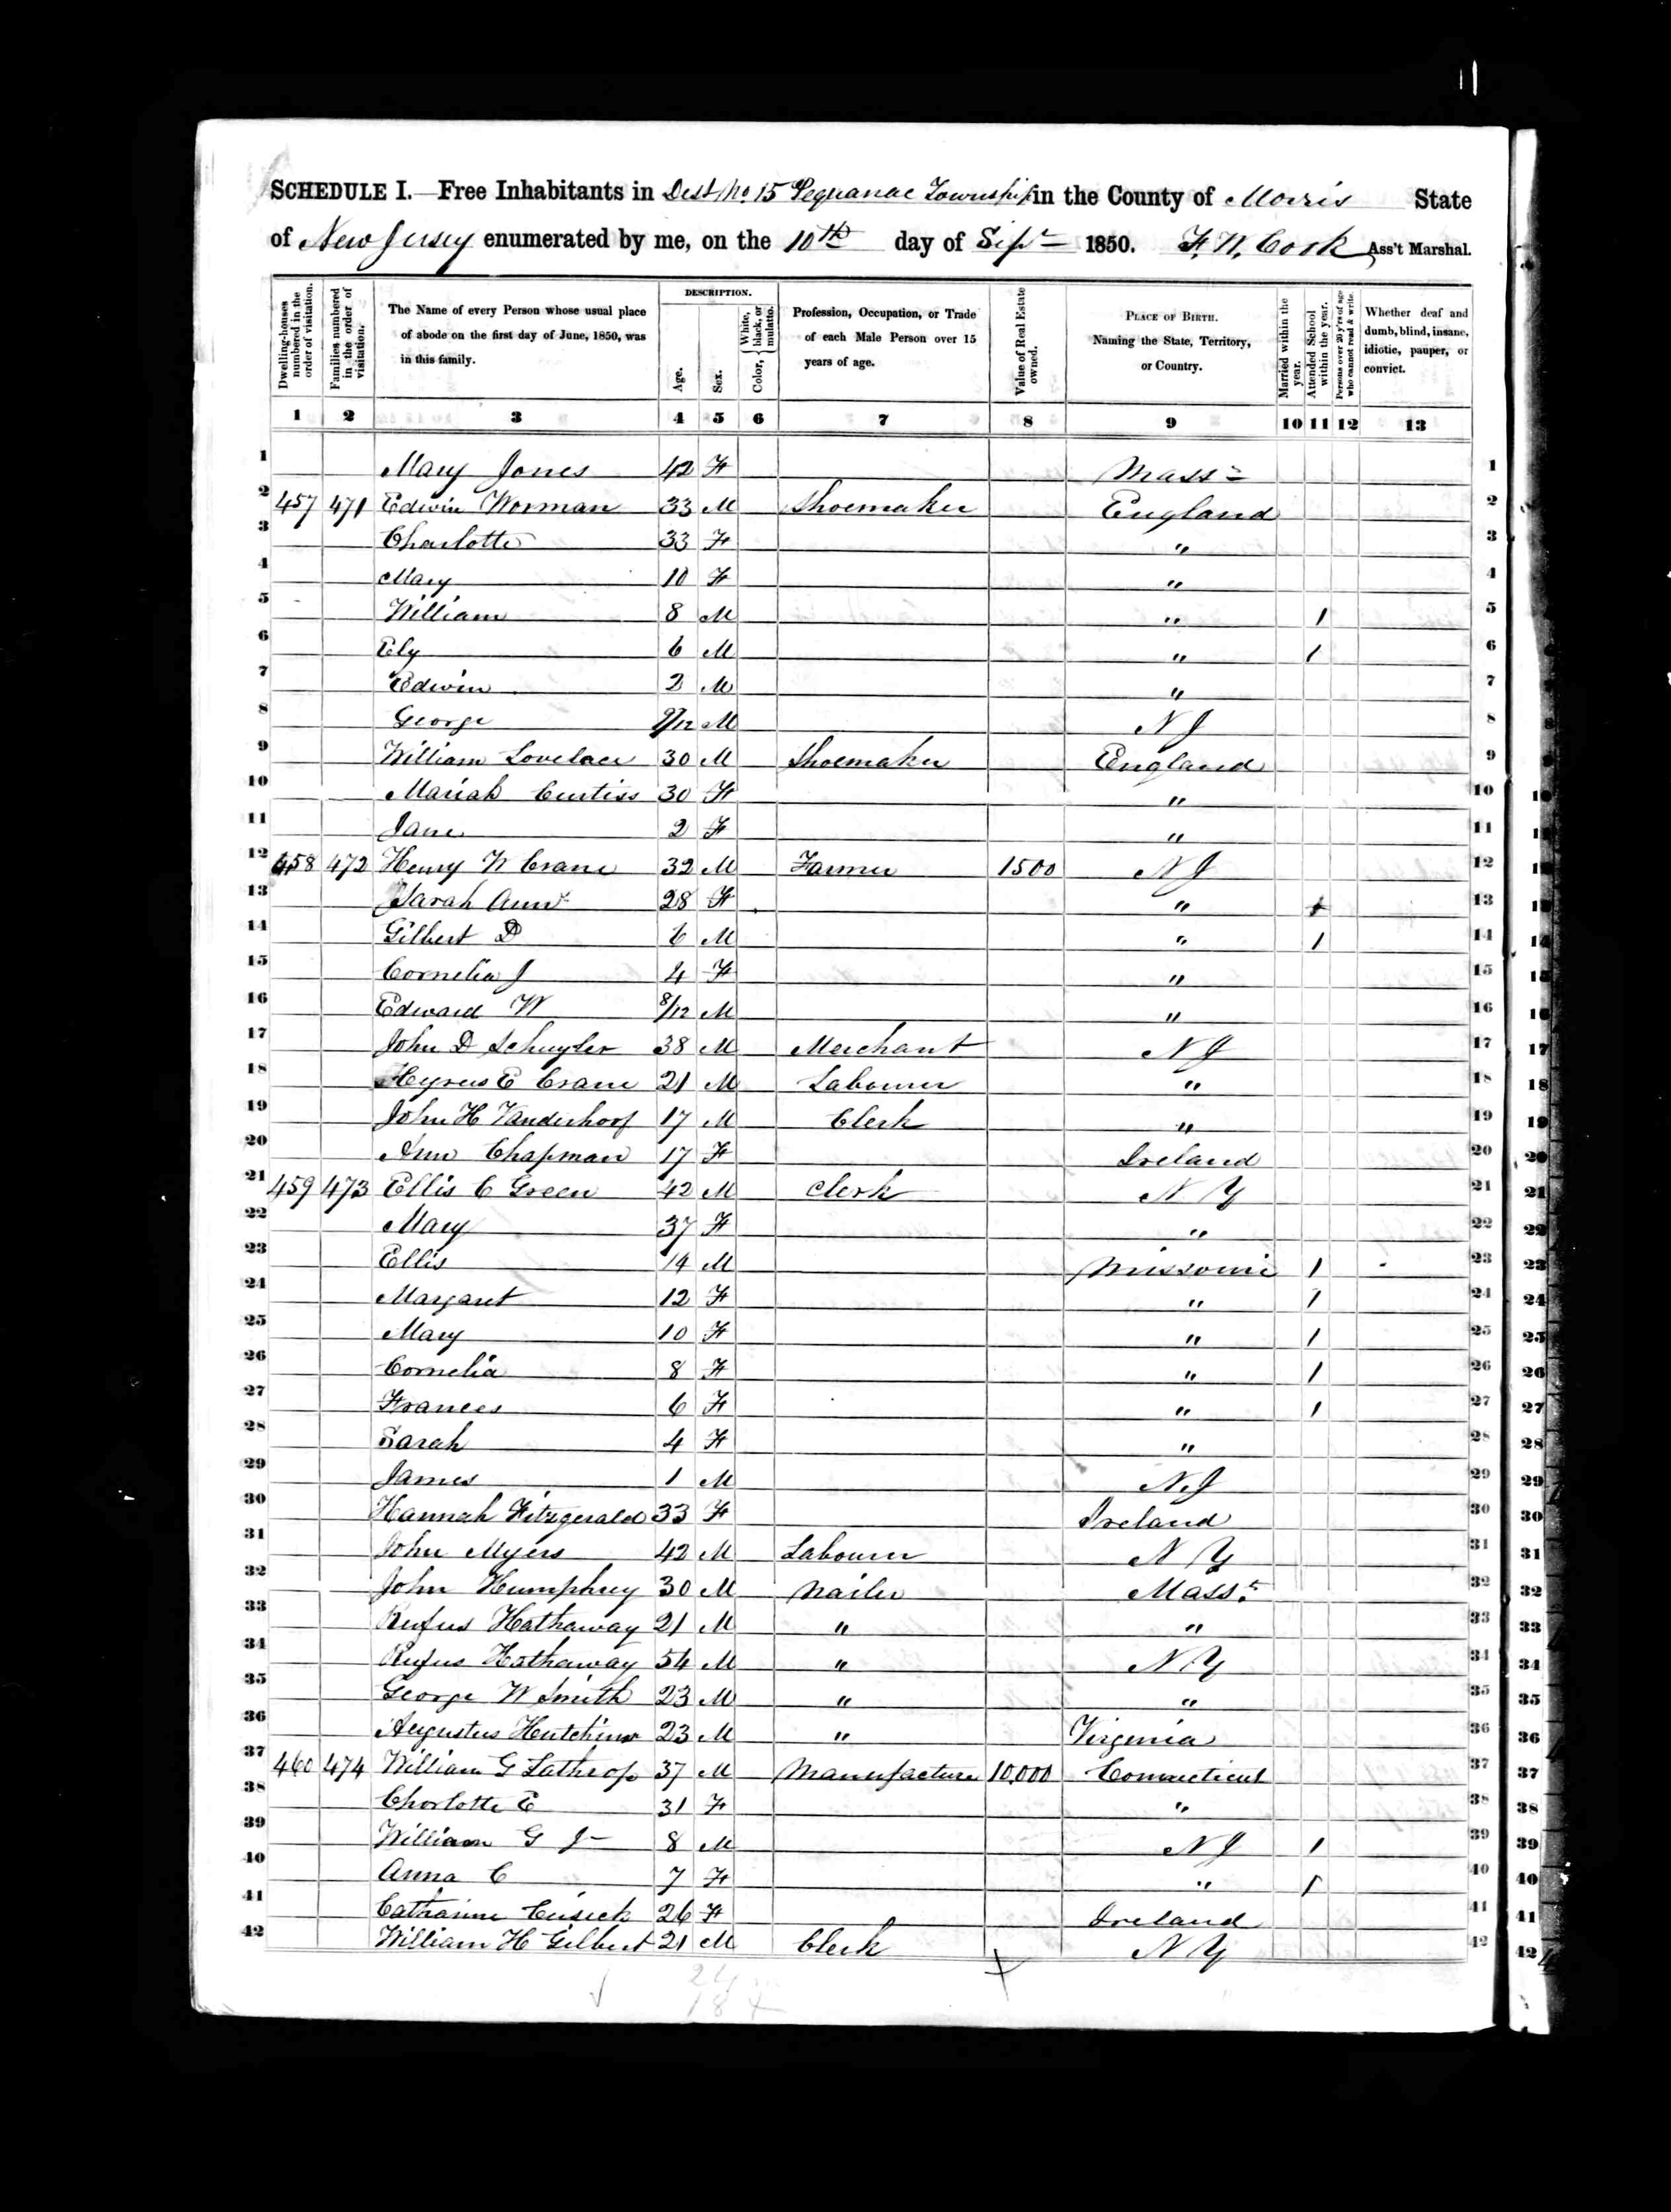 SCHEDULE I.—Free Inhabitants in Dist No 15 Pequanac Township in the County of Morris State
of New Jersey enumerated by me, on the 10th day of Sept 1850. F. W. Cook Ass't Marshal.
Dwelling-houses numbered in the order of visitation.
Families numbered in the order of visitation.
The Name of every Person whose usual place of abode on the first day of June, 1850, was in this family.
DESCRIPTION.
Age.
Sex.
Color, { White, black, or mulatto.
Profession, Occupation, or Trade of each Male Person over 15 years of age.
Value of Real Estate owned.
PLACE OF BIRTH. Naming the State, Territory, or Country.
Married within the year.
Attended School within the year.
Persons over 20 y'rs of age who cannot read & write.
Whether deaf and dumb, blind, insane, idiotic, pauper, or convict.
1 2 3 4 5 6 7 8 9 10 11 12 13
1 Mary Jones 42 F Mass 1
2 457 471 Edwin Worman 33 M Shoemaker England 2
3 Charlotte 33 F " 3
4 Mary 10 F " 4
5 William 8 M " 1 5
6 Ely 6 M " 1 6
7 Edwin 2 M " 7
8 George 9/12 M N J 8
9 William Lovelace 30 M Shoemaker England 9
10 Mariah Curtiss 30 F " 10
11 Jane 2 F " 11
12 458 472 Henry W Crane 32 M Farmer 1500 N J 12
13 Sarah Ann 28 F " 13
14 Gilbert D 6 M " 1 14
15 Cornelia J 4 F " 15
16 Edward W 8/12 M " 16
17 John D Schuyler 38 M Merchant N J 17
18 Hyrus E Crane 21 M Labourer " 18
19 John H Vanderhoof 17 M Clerk " 19
20 Ann Chapman 17 F Ireland 20
21 459 473 Ellis C Green 42 M Clerk N Y 21
22 Mary 37 F " 22
23 Ellis 14 M Missouri 1 23
24 Margaret 12 F " 1 24
25 Mary 10 F " 1 25
26 Cornelia 8 F " 1 26
27 Frances 6 F " 1 27
28 Sarah 4 F " 28
29 James 1 M N.J 29
30 Hannah Fitzgerald 33 F Ireland 30
31 John Myers 42 M Labourer N Y 31
32 John Humphrey 30 M Nailer Mass. 32
33 Rufus Hathaway 21 M " " 33
34 Rufus Hathaway 54 M " N Y 34
35 George W Smith 23 M " " 35
36 Augustus Hutchins 23 M " Virginia 36
37 460 474 William G Lathrop 37 M Manufacture 10,000 Connecticut 37
38 Charlotte E 31 F " 38
39 William G Jr 8 M N J 1 39
40 Anna C 7 F " 1 40
41 Catharine Cusick 26 F Ireland 41
42 William H Gilbert 21 M Clerk N Y 42
24
18